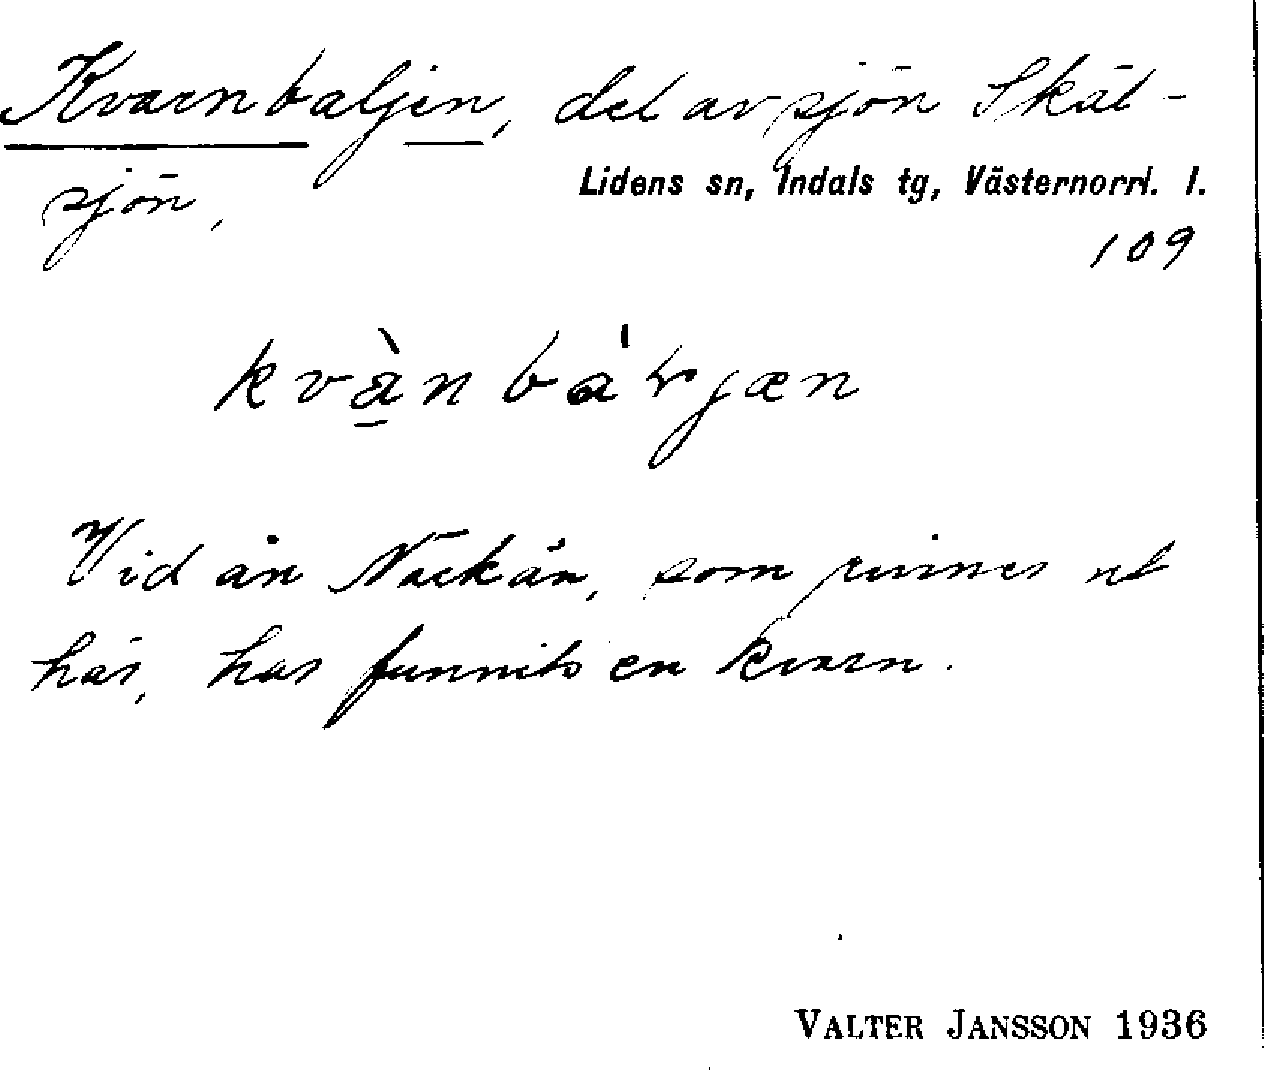 Kvarnbaljen, del av sjön Skäl-
sjön,
Lidens sn, Indals tg, Västernorrl. l.
109
Vid ån Nackån, som rinner ut
här, har funnits en kvarn.
VALTER JANSSON 1936